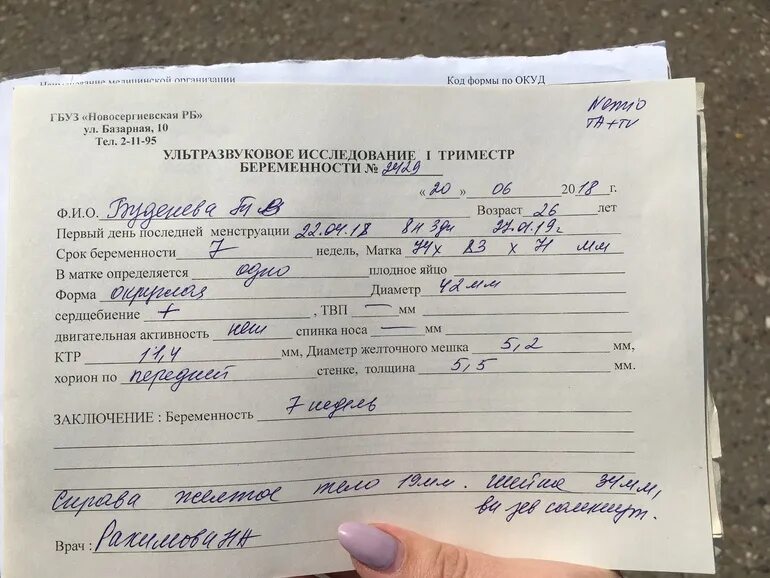 Наименование медицинской организации Код формы по ОКУД
ГБУЗ «Новосергиевская РБ»
ул. Базарная, 10
Тел. 2-11-95
Nemio
TA+TV
УЛЬТРАЗВУКОВОЕ ИССЛЕДОВАНИЕ I ТРИМЕСТР
БЕРЕМЕННОСТИ № 2429
«20» 06 2018 г.
Ф.И.О. Возраст 26 лет
Первый день последней менструации 22.04.18 8н 3дн 27.01.19г
Срок беременности 7 недель, Матка 74х 83 х 71 мм
В матке определяется одно плодное яйцо
Форма округлая Диаметр 42мм
сердцебиение + , ТВП — мм
двигательная активность нет спинка носа — мм
КТР 11,4 мм, Диаметр желточного мешка 5,2 мм,
хорион по передней стенке, толщина 5,5 мм.
ЗАКЛЮЧЕНИЕ : Беременность 7 недель
Справа желтое тело 19мм. Шейка 34мм,
вн зев сомкнут.
Врач : Рахимова НН